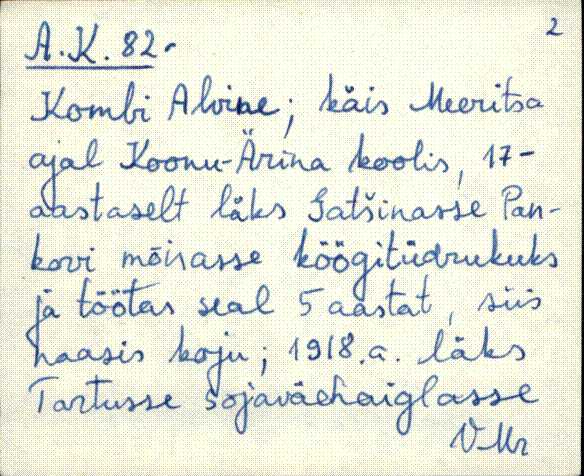 2
A.K. 82.
Kombi Alvine; käis Meeritsa
ajal Koonu-Ärina koolis, 17-
aastaselt läks Gatšinasse Pan-
kovi mõisasse köögitüdrukuks
ja töötas seal 5 aastat, siis
naasis koju; 1918.a. läks
Tartusse sõjaväehaiglasse
VMr